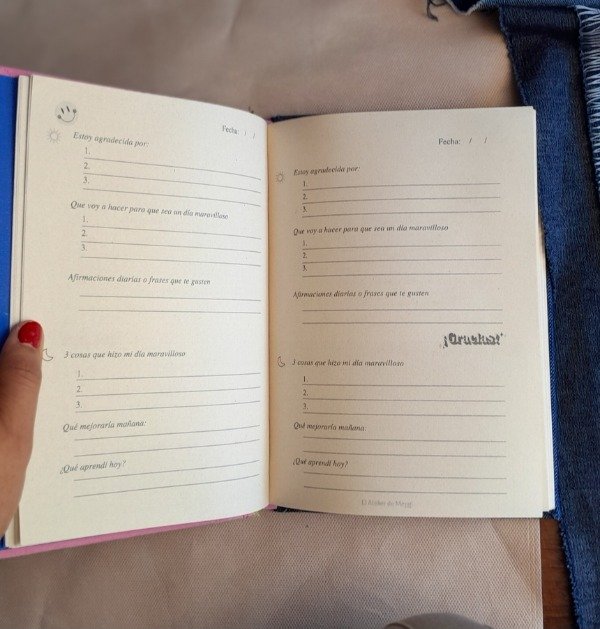 Fecha: / /
Estoy agradecida por:
1.
2.
3.
Que voy a hacer para que sea un día maravilloso
1.
2.
3.
Afirmaciones diarias o frases que te gusten
3 cosas que hizo mi día maravilloso
1.
2.
3.
Qué mejoraría mañana:
¿Qué aprendí hoy?
Fecha: / /
Estoy agradecida por:
1.
2.
3.
Que voy a hacer para que sea un día maravilloso
1.
2.
3.
Afirmaciones diarias o frases que te gusten
3 cosas que hizo mi día maravilloso
1.
2.
3.
Qué mejoraría mañana:
¿Qué aprendí hoy?
El Atelier de